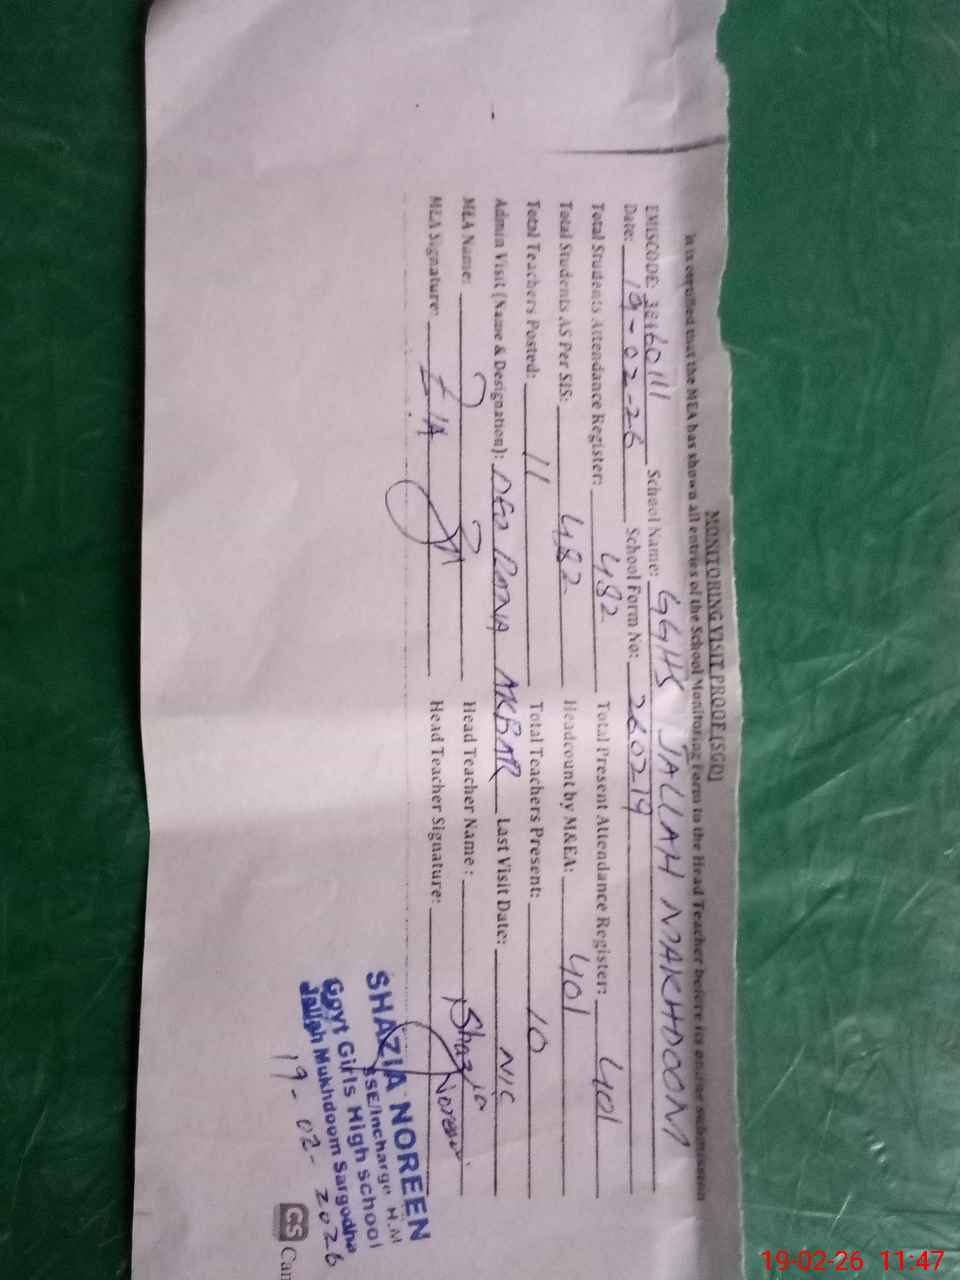 MONITORING VISIT PROOF (SGD)
It is certified that the MEA has shown all entries of the School Monitoring Form to the Head Teacher before its online submission
EMISCODE: 38460111 School Name: GGHS JALLAH MAKHDOOM
Date: 19-02-26 School Form No: 260219
Total Students Attendance Register: 482 Total Present Attendance Register: 401
Total Students AS Per SIS: 482 Headcount by M&EA: 401
Total Teachers Posted: 11 Total Teachers Present: 10
Admin Visit (Name & Designation): DEO AKBAR Last Visit Date:
MEA Name: Head Teacher Name: Shazia Noreen
MEA Signature: Head Teacher Signature:
SHAZIA NOREEN
SSE/Incharge H.M
Govt Girls High School
Jallah Mukhdoom Sargodha
19-02-2026
CS Cam
19-02-26 11:47